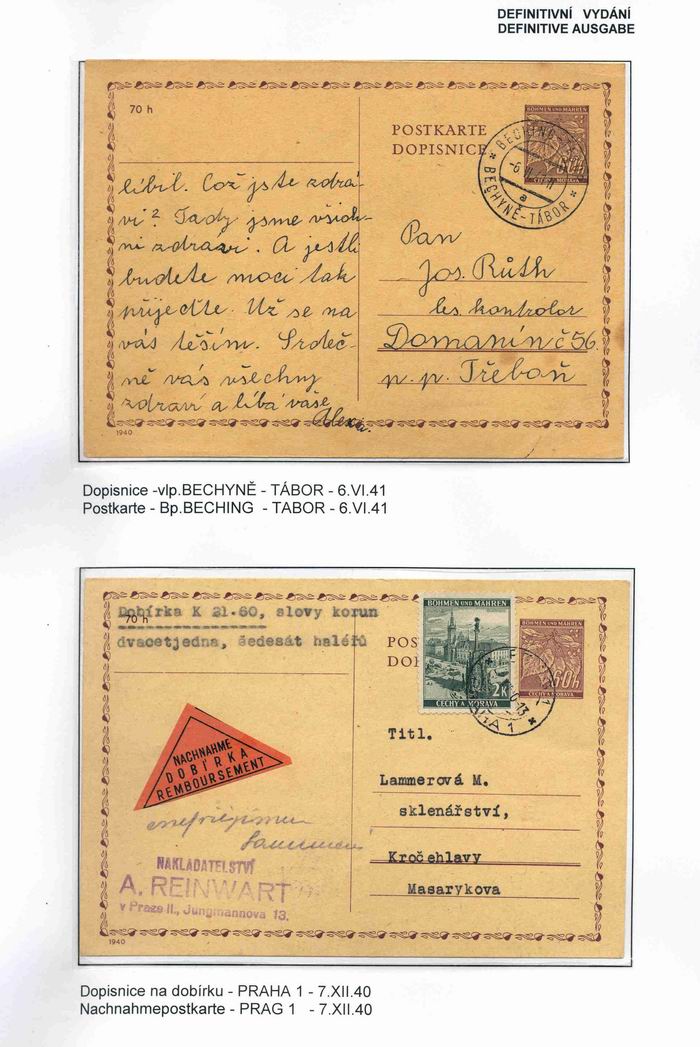 DEFINITIVNÍ VYDÁNÍ
DEFINITIVE AUSGABE
70 h
POSTKARTE
DOPISNICE
BÖHMEN UND MÄHREN
60h
ČECHY A MORAVA
BECHYNĚ-TÁBOR
a
líbil. Což jste zdrá-
vi? Tady jsme všich-
ni zdravi. A jestli
budete moci tak
přijeďte. Už se na
vás těším. Srdeč-
ně vás všechny
zdraví a líbá vaše
Pan
Jos. Růth
les. kontrolor
Domanín č 56.
p. p. Třeboň
1940
Dopisnice -vlp.BECHYNĚ - TÁBOR - 6.VI.41
Postkarte - Bp.BECHING - TABOR - 6.VI.41
Dobírka K 21.60, slovy korun
70 h
dvacetjedna, šedesát haléřů
BÖHMEN UND MÄHREN
2K
ČECHY A MORAVA
BÖHMEN UND MÄHREN
60h
ČECHY A MORAVA
NACHNAHME
DOBÍRKA
REMBOURSEMENT
Titl.
Lammerová M.
sklenářství,
Kročehlavy
Masarykova
NAKLADATELSTVÍ
A. REINWART
v Praze II., Jungmannova 13.
1940
Dopisnice na dobírku - PRAHA 1 - 7.XII.40
Nachnahmepostkarte - PRAG 1 - 7.XII.40